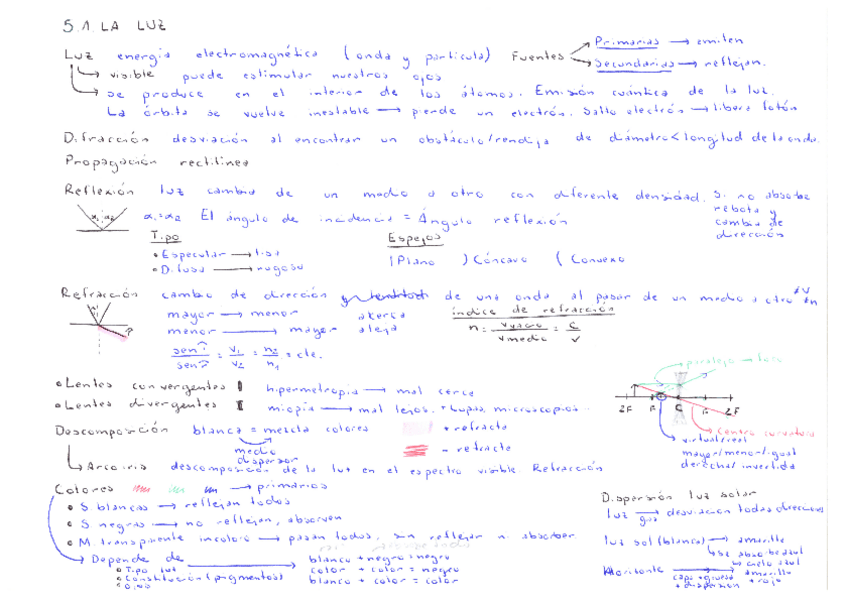 5.1. LA LUZ
Luz energía electromagnética (onda y partícula) Fuentes Primarias → emiten
Secundarias → reflejan.
→ visible puede estimular nuestros ojos
→ se produce en el interior de los átomos. Emisión cuántica de la luz.
La órbita se vuelve inestable → pierde un electrón. Salto electrón → libera fotón
Difracción desviación al encontrar un obstáculo/rendija de diámetro < longitud de la onda.
Propagación rectilínea
Reflexión luz cambia de un medio a otro con diferente densidad. Si no absorbe
rebota y
cambia de
dirección
α1 α2 α1=α2 El ángulo de incidencia = Ángulo reflexión
Tipo
• Especular → lisa
• Difusa → rugosa
Espejos
| Plano ) Cóncavo ( Convexo
Refracción cambio de dirección de una onda al pasar de un medio a otro
mayor → menor acerca
menor → mayor aleja
índice de refracción
n = vvacío / vmedio = c / v
sen î / sen r̂ = v1 / v2 = n2 / n1 = cte.
• Lentes convergentes hipermetropía → mal cerca
• Lentes divergentes miopía → mal lejos. + Lupas, microscopios.
paralelo → foco
2F F C F 2F
Centro curvatura
virtual/real
mayor/menor/igual
derecha/invertida
Descomposición blanca = mezcla colores + refracta
medio
dispersor
- refracta
Arcoiris descomposición de la luz en el espectro visible. Refracción
Colores → primarios
• S. blancas → reflejan todos
• S. negras → no reflejan, absorven
• M. transparente incoloro → pasan todos, sin reflejar ni absorber
Depende de
• Tipo luz
• Constitución (pigmentos)
• Ojos
blanco + negro = negro
color + color = negro
blanco + color = color
Dispersión luz solar
luz → gas desviación todas direcciones
luz sol (blanca) → amarilla
→ se absorbe azul
→ cielo azul
Horizonte → amarillo
capa + gruesa + rojo
+ dispersión